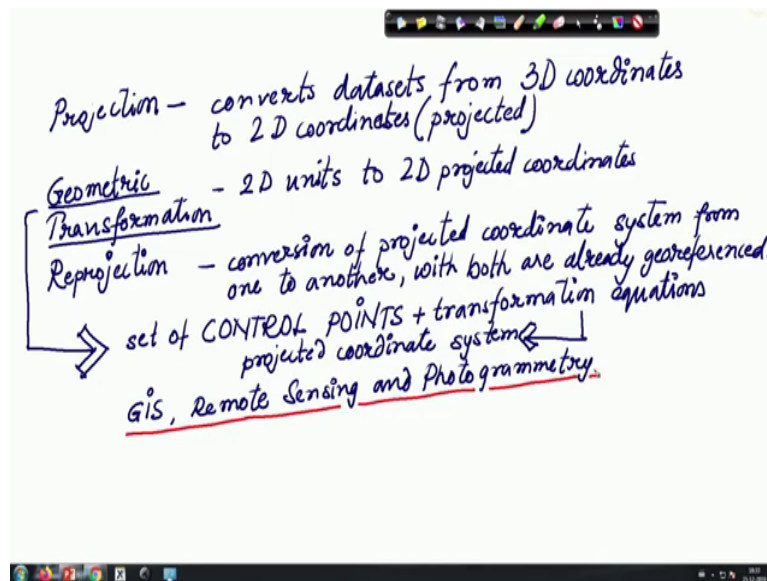 Projection – converts datasets from 3D coordinates
to 2D coordinates (projected)
Geometric – 2D units to 2D projected coordinates
Transformation
Reprojection – conversion of projected coordinate system from
one to another, with both are already georeferenced.
set of CONTROL POINTS + transformation equations
projected coordinate system
GIS, Remote Sensing and Photogrammetry.